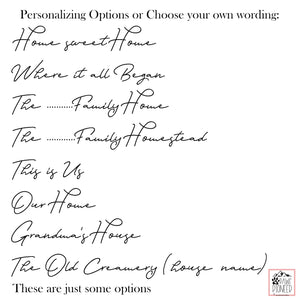 Personalizing Options or Choose your own wording:
Home sweet Home
Where it all Began
The ...........Family Home
The ...........Family Homestead
This is Us
Our Home
Grandma's House
The Old Creamery (house name)
These are just some options
PIONEER